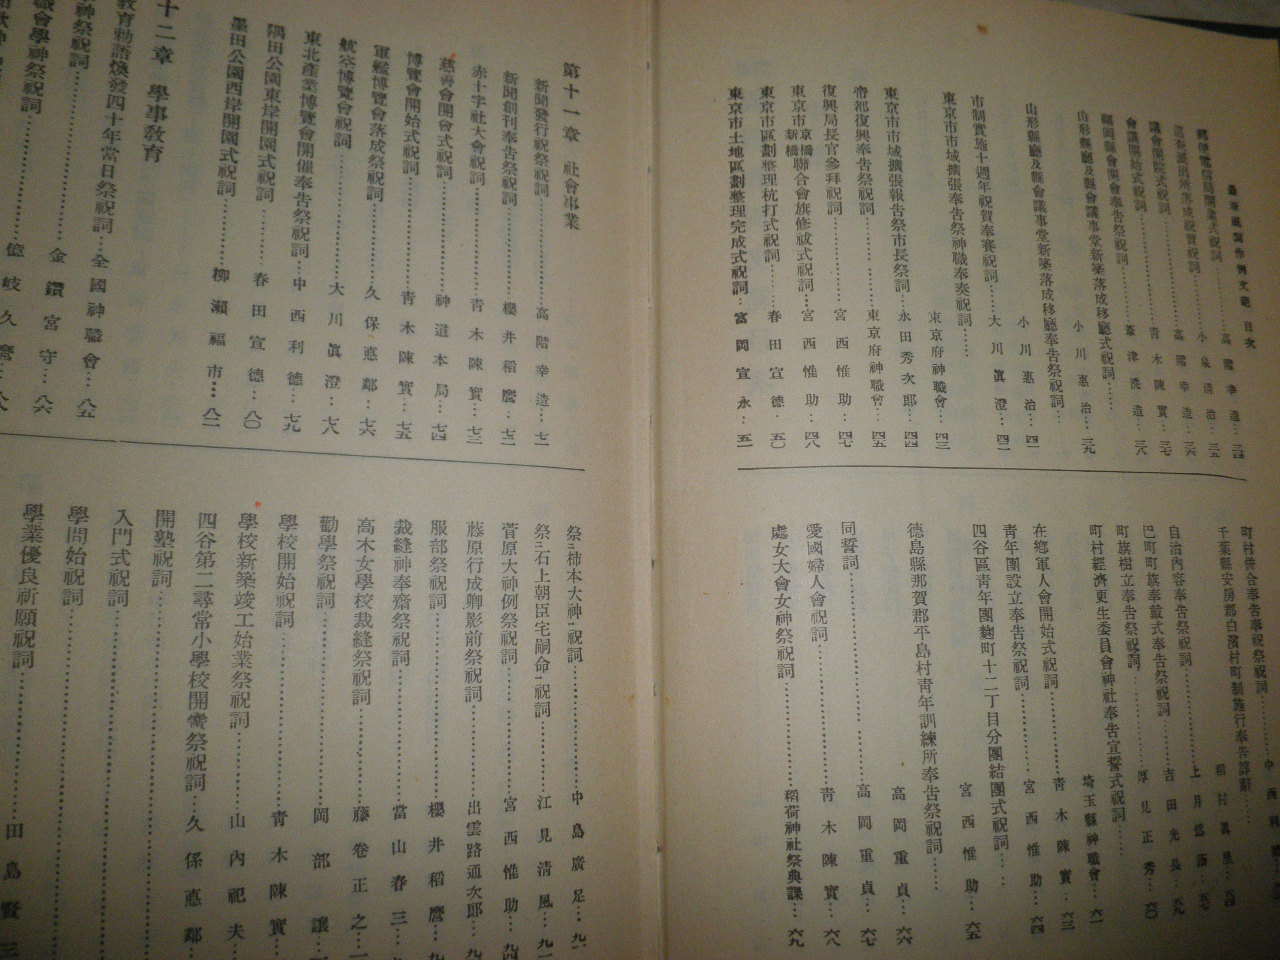 最新祝詞作例文範 目次
郵便電信局開業式祝詞……高階幸造…三四
巡査派出所落成祝賀祝詞……小泉清治…三五
議會開院式祝詞……高階幸造…三六
會議開始式祝詞……青木陳實…三七
福岡縣會開會奉告祭祝詞……葦津洗造…三八
山形縣廳及縣會議事堂新築落成移廳式祝詞……
小川惠治…三九
山形縣廳及縣會議事堂新築落成移廳奉告祭祝詞…
小川惠治…四一
市制實施十週年祝賀奉賽祝詞……大川眞澄…四二
東京市市域擴張奉告祭神職奉奏祝詞……
東京府神職會…四三
東京市市域擴張報告祭市長祭詞…永田秀次郎…四四
帝都復興奉告祭祝詞……東京府神職會…四五
復興局長官參拜祝詞……宮西惟助…四七
東京市京橋新橋聯合會旗修祓式祝詞…宮西惟助…四八
東京市區劃整理杭打式祝詞……春田宣德…五〇
東京市土地區劃整理完成式祝詞…富岡宣永…五一
町村併合奉告奉祝祭祝詞……
千葉縣安房郡白濱村町制施行奉告諄辭……
稻村眞里…
自治內容奉告祭祝詞……上月爲蔭…五七
巴町町旗奉戴式奉告祭祝詞……吉田光長…五九
町旗樹立奉告祭祝詞……厚見正秀…六〇
町村經濟更生委員會神社奉告宣誓式祝詞……
埼玉縣神職會…六一
在鄕軍人會開始式祝詞……青木陳實…六三
青年團設立奉告祭祝詞……宮西惟助…六四
四谷區青年團麴町十二丁目分團結團式祝詞……
宮西惟助…六五
德島縣那賀郡平島村青年訓練所奉告祭祝詞……
高岡重貞…六六
同誓詞……高岡重貞…六七
愛國婦人會祝詞……青木陳實…六八
處女大會女神祭祝詞……稻荷神社祭典課…六九
第十一章 社會事業
新聞發行祝祭祝詞……高階幸造…七一
新聞創刊奉告祭祝詞……櫻井稻麿…七二
赤十字社大會祝詞……青木陳實…七三
慈善會開會式祝詞……神道本局…七四
博覽會開始式祝詞……青木陳實…七五
軍艦博覽會落成祭祝詞……久保悳鄰…七六
航空博覽會祝詞……大川眞澄…七八
東北產業博覽會開催奉告祭祝詞…中西利德…七九
隅田公園東岸開園式祝詞……春田宣德…八〇
墨田公園西岸開園式祝詞……柳瀨福市…八二
十二章 學事敎育
敎育勅語煥發四十年當日祭祝詞…全國神職會…八五
神祭祝詞……金鑽宮守…八六
職會學神祭祝詞……億岐久麿…八八
祭三柿本大神一祝詞……中島廣足…九一
祭三石上朝臣宅嗣命一祝詞……江見淸風…九一
菅原大神例祭祝詞……宮西惟助…九四
藤原行成卿影前祭祝詞……出雲路通次郎…九
服部祭祝詞……櫻井稻麿…九
裁縫神奉齋祭祝詞……當山春三…
高木女學校裁縫祭祝詞……藤卷正之…
勸學祭祝詞……岡部讓…
學校開始祝詞……青木陳實…
學校新築竣工始業祭祝詞……山內祀夫…
四谷第二尋常小學校開黌祭祝詞…久保悳鄰…
開塾祝詞……
入門式祝詞……
學問始祝詞……
學業優良祈願祝詞……田島賢三